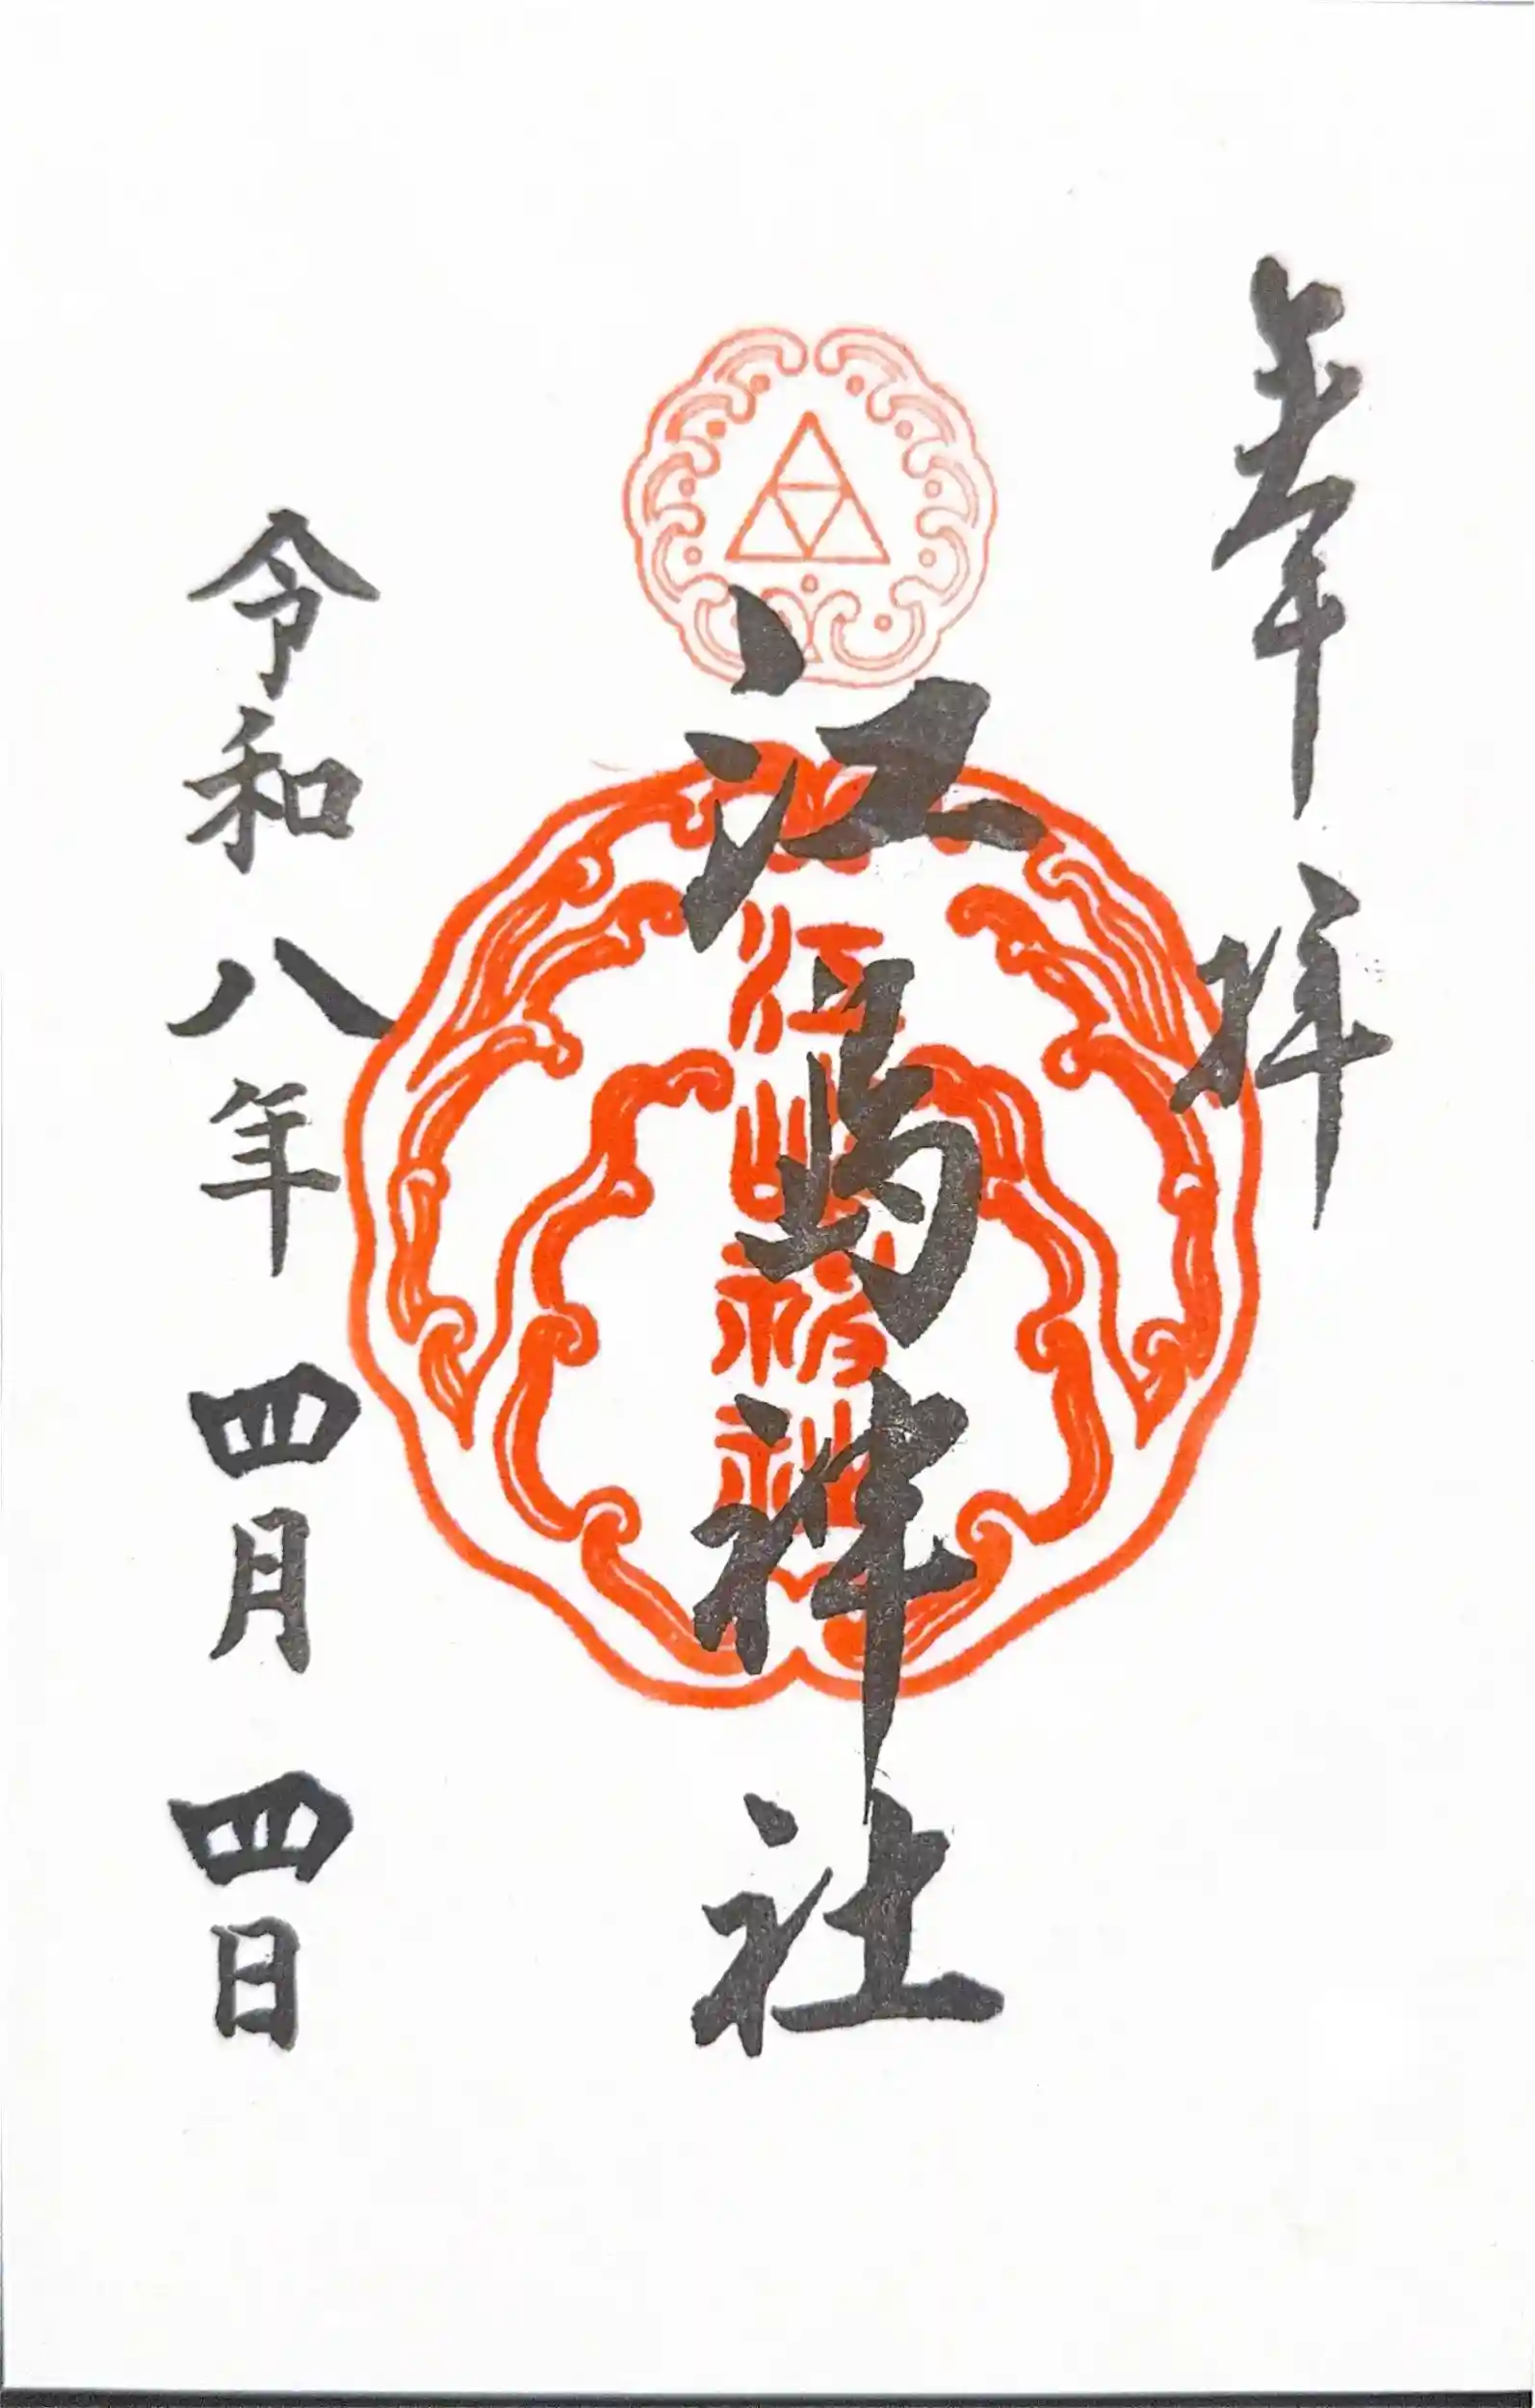 奉拝
江島神社
江島神社
令和八年四月四日